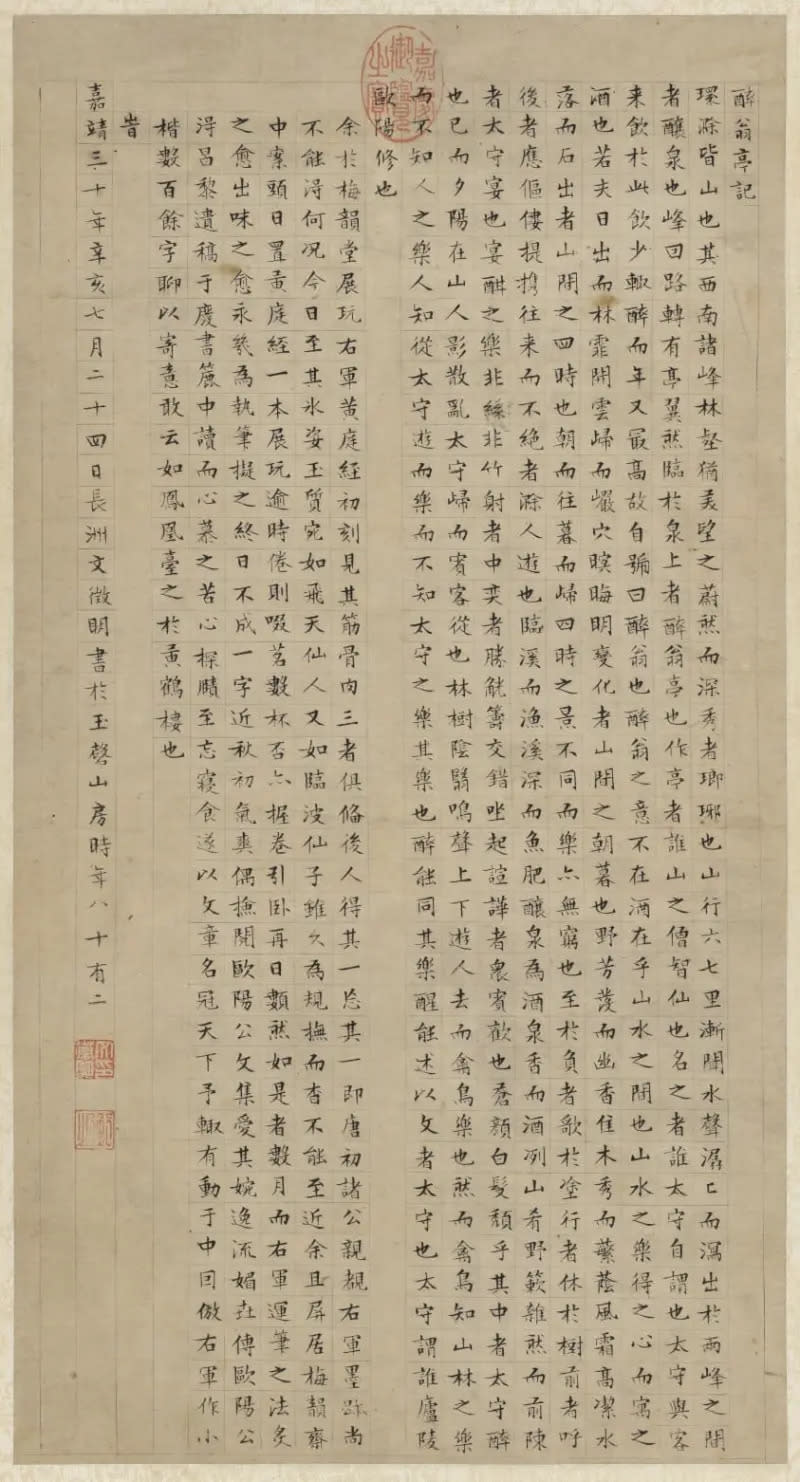 醉翁亭記
環滁皆山也其西南諸峰林壑猶美望之蔚然而深秀者瑯琊也山行六七里漸聞水聲潺〻而瀉出於兩峰之間
者釀泉也峰回路轉有亭翼然臨於泉上者醉翁亭也作亭者誰山之僧智仙也名之者誰太守自謂也太守與客
来飲於此飲少輙醉而年又最高故自號曰醉翁也醉翁之意不在酒在乎山水之間也山水之樂得之心而寓之
酒也若夫日出而林霏開雲歸而巖穴暝晦明變化者山間之朝暮也野芳發而幽香佳木秀而蘩蔭風霜高潔水
落而石出者山間之四時也朝而往暮而歸四時之景不同而樂亦無窮也至於負者歌於塗行者休於樹前者呼
後者應傴僂提携往来而不絕者滁人遊也臨溪而漁溪深而魚肥釀泉為酒泉香而酒冽山肴野簌雜然而前陳
者太守宴也宴酣之樂非絲非竹射者中奕者勝觥籌交錯坐起諠譁者衆賓歡也蒼顏白髮頹乎其中者太守醉
也已而夕陽在山人影散亂太守歸而賓客從也林樹陰翳鳴聲上下遊人去而禽鳥樂也然而禽鳥知山林之樂
而不知人之樂人知從太守遊而樂而不知太守之樂其樂也醉能同其樂醒能述以文者太守也太守謂誰廬陵
歐陽修也
余於梅韻堂展玩右軍黃庭經初刻見其筋骨肉三者俱備後人得其一忘其一即唐初諸公親覩右軍墨跡尚
不能淂何况今日至其氷姿玉質宛如飛天仙人又如臨波仙子雖久為規撫而杳不能至近余且屏居梅韻齋
中案頭日置黃庭經一本展玩逾時倦則啜茗數杯否亦握卷引臥再日顙然如是者數月而右軍運筆之法炙
之愈出味之愈永㡬為執筆擬之終日不成一字近秋初氣爽偶撫閱歐陽公文集愛其婉逸流媚世傳歐陽公
淂昌黎遺稿于慶書簏中讀而心慕之苦心探賾至忘寢食遂以文章名冠天下予輙有動于中因倣右軍作小
楷數百餘字聊以寄意敢云如鳳凰臺之於黃鶴樓也
旹
嘉靖三十年辛亥七月二十四日長洲文徵明書於玉磬山房時年八十有二
嘉慶御覽之寶